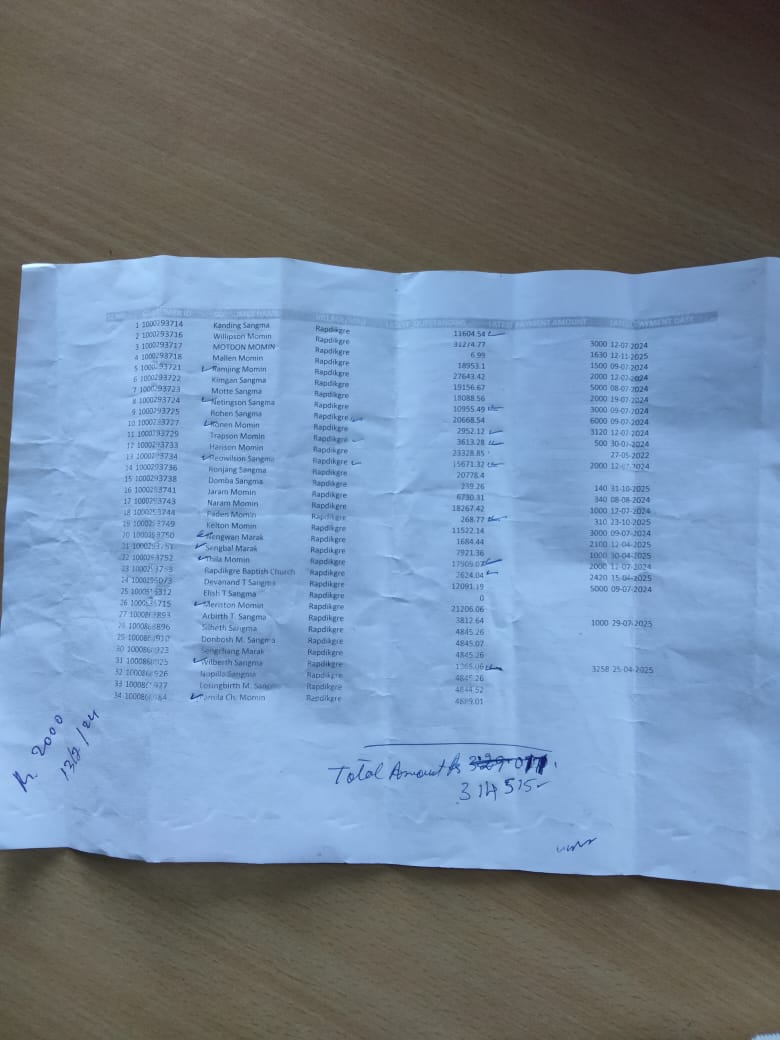 CUSTOMER ID CUSTOMER NAME VILLAGE NAME LATEST OUTSTANDING LATEST PAYMENT AMOUNT LATEST PAYMENT DATE
1 1000293714 Kanding Sangma Rapdikgre 11604.54 3000 12-07-2024
2 1000293716 Willipson Momin Rapdikgre 31274.77 1630 12-11-2025
3 1000293717 MOTOON MOMIN Rapdikgre 6.99 1500 09-07-2024
4 1000293718 Mallen Momin Rapdikgre 18953.1 2000 12-07-2024
5 1000293721 Ramjing Momin Rapdikgre 27643.42 5000 08-07-2024
6 1000293722 Kimgan Sangma Rapdikgre 19156.67 2000 19-07-2024
7 1000293723 Motte Sangma Rapdikgre 18088.56 3000 09-07-2024
8 1000293724 Netingson Sangma Rapdikgre 10955.49 6000 09-07-2024
9 1000293725 Rohen Sangma Rapdikgre 20668.54 3120 12-07-2024
10 1000293727 Konen Momin Rapdikgre 2952.12 500 30-07-2024
11 1000293729 Trapson Momin Rapdikgre 3613.28 27-05-2022
12 1000293733 Harison Momin Rapdikgre 23328.85 2000 12-07-2024
13 1000293734 Neowilson Sangma Rapdikgre 15671.32
14 1000293736 Ronjang Sangma Rapdikgre 20778.4 140 31-10-2025
15 1000293738 Domba Sangma Rapdikgre 239.26 340 08-08-2024
16 1000293741 Jaram Momin Rapdikgre 6730.31 1000 12-07-2024
17 1000293743 Naram Momin Rapdikgre 18267.42 310 23-10-2025
18 1000293744 Paden Momin Rapdikgre 268.77 3000 09-07-2024
19 1000293749 Kelton Momin Rapdikgre 11522.14 2100 12-04-2025
20 1000293750 Tengwan Marak Rapdikgre 1684.44 1000 30-04-2025
21 1000293751 Sengbal Marak Rapdikgre 7921.36 2000 12-07-2024
22 1000293752 Thila Momin Rapdikgre 17909.07 2420 15-04-2025
23 1000293753 Rapdikgre Baptish Church Rapdikgre 2624.04 5000 09-07-2024
24 Devanand T Sangma Rapdikgre 12091.19
25 Elish T Sangma Rapdikgre 0
26 Meriston Momin Rapdikgre 21206.06 1000 29-07-2025
27 Arbirth T. Sangma Rapdikgre 3812.64
28 Silbeth Sangma Rapdikgre 4845.26
29 Donbosh M. Sangma Rapdikgre 4845.07
30 Sengchang Marak Rapdikgre 4845.26
31 Wilberth Sangma Rapdikgre 1365.06 3258 25-04-2025
32 Nopilla Sangma Rapdikgre 4845.26
33 Losingbirth M. Sangma Rapdikgre 4844.52
34 Jamila Ch. Momin Rapdikgre 4889.01
Rs. 2000
Total Amount Rs
314515